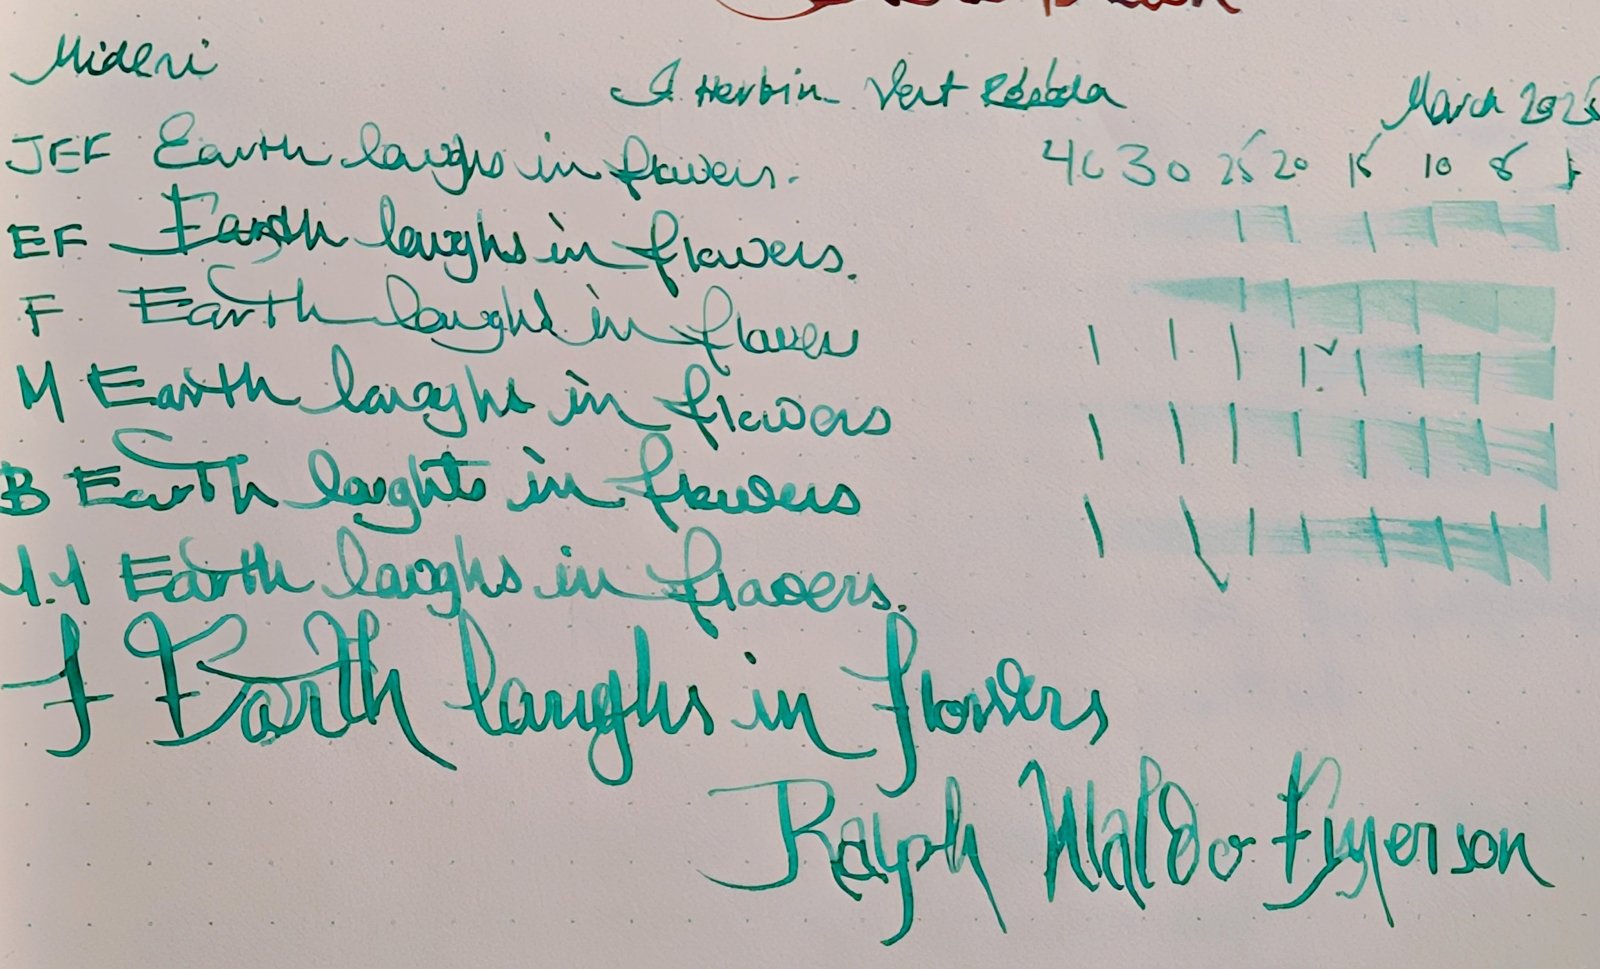 Midori
J Herbin Vert Réséda
March 2025
JEF Earth laughs in flowers.
40 30 25 20 15 10 5 1
EF Earth laughs in flowers.
F Earth laughs in flowers
M Earth laughs in flowers
B Earth laughts in flowers
1.1 Earth laughs in flowers.
f Earth laughs in flowers
Ralph Waldo Emerson